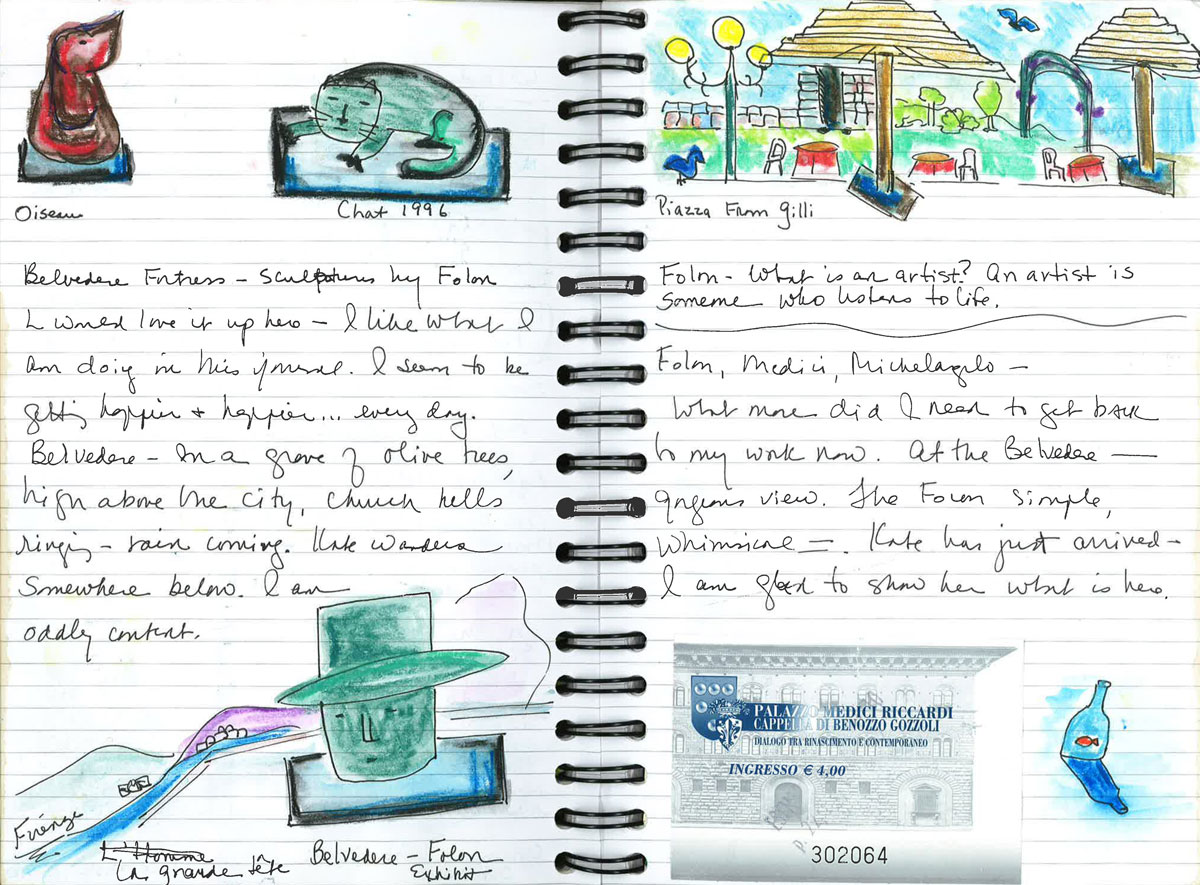 Oiseau
Chat 1996
Belvedere Fortress - Sculptures by Folon
I would love it up here - I like what I
am doing in this journal. I seem to be
getting happier + happier... every day.
Belvedere - In a grove of olive trees,
high above the city, church bells
ringing - rain coming. Kate wanders
somewhere below. I am
oddly content.
Firenze
L'Homme
La grande tête
Belvedere - Folon
Exhibit
Piazza From Gilli
Folon - What is an artist? An artist is
someone who listens to life.
Folon, Medici, Michelangelo -
What more did I need to get back
to my work now. At the Belvedere —
gorgeous view. The Folon simple,
whimsical -. Kate has just arrived -
I am glad to show her what is here.
PALAZZO MEDICI RICCARDI
CAPPELLA DI BENOZZO GOZZOLI
DIALOGO TRA RINASCIMENTO E CONTEMPORANEO
INGRESSO € 4,00
302064